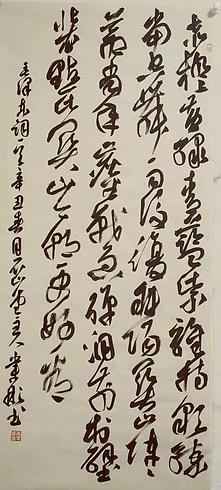 赤橙黄绿青蓝紫谁持彩练
當空舞雨後復斜陽關山阵阵
苍當年鏖战急弹洞前村壁
装點此關山今朝更好看
毛泽东词辛丑春月主人书